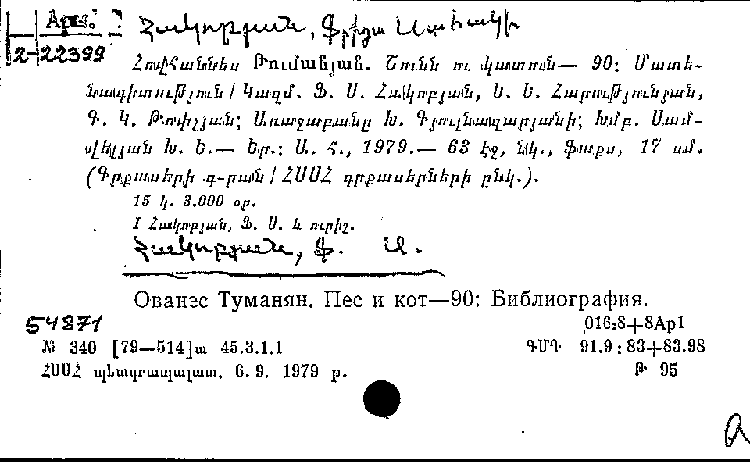 Арм.
2-22399
Հակոբյան, Ֆրիդա Սահակի
Հովհաննես Թումանյան. Շունն ու կատուն— 90: Մատե-
նագիտություն / Կազմ. Ֆ. Ս. Հակոբյան, Ս. Ս. Հարությունյան,
Գ. Կ. Թոփչյան; Առաջաբանը Խ. Գյուլնազարյանի; Խմբ. Սամ-
վելյան Խ. Ե.— Եր.: Ա. Հ., 1979.— 63 էջ, նկ., ֆաքս, 17 սմ.
(Գրքասերի գ-րան / ՀՍՍՀ գրքասերների ընկ.).
15 կ. 3.000 օր.
I Հակոբյան, Ֆ. Ս. և ուրիշ.
Հակոբյան, Ֆ. Ս.
Ованэс Туманян. Пес и кот—90: Библиография.
54871
016:8+8Ap1
№ 340 [79—514]ա 45.3.1.1
ԳՄԴ 91.9:83+83.98
ՀՍՍՀ պետգրապալատ, 6. 9. 1979 թ.
Թ 95